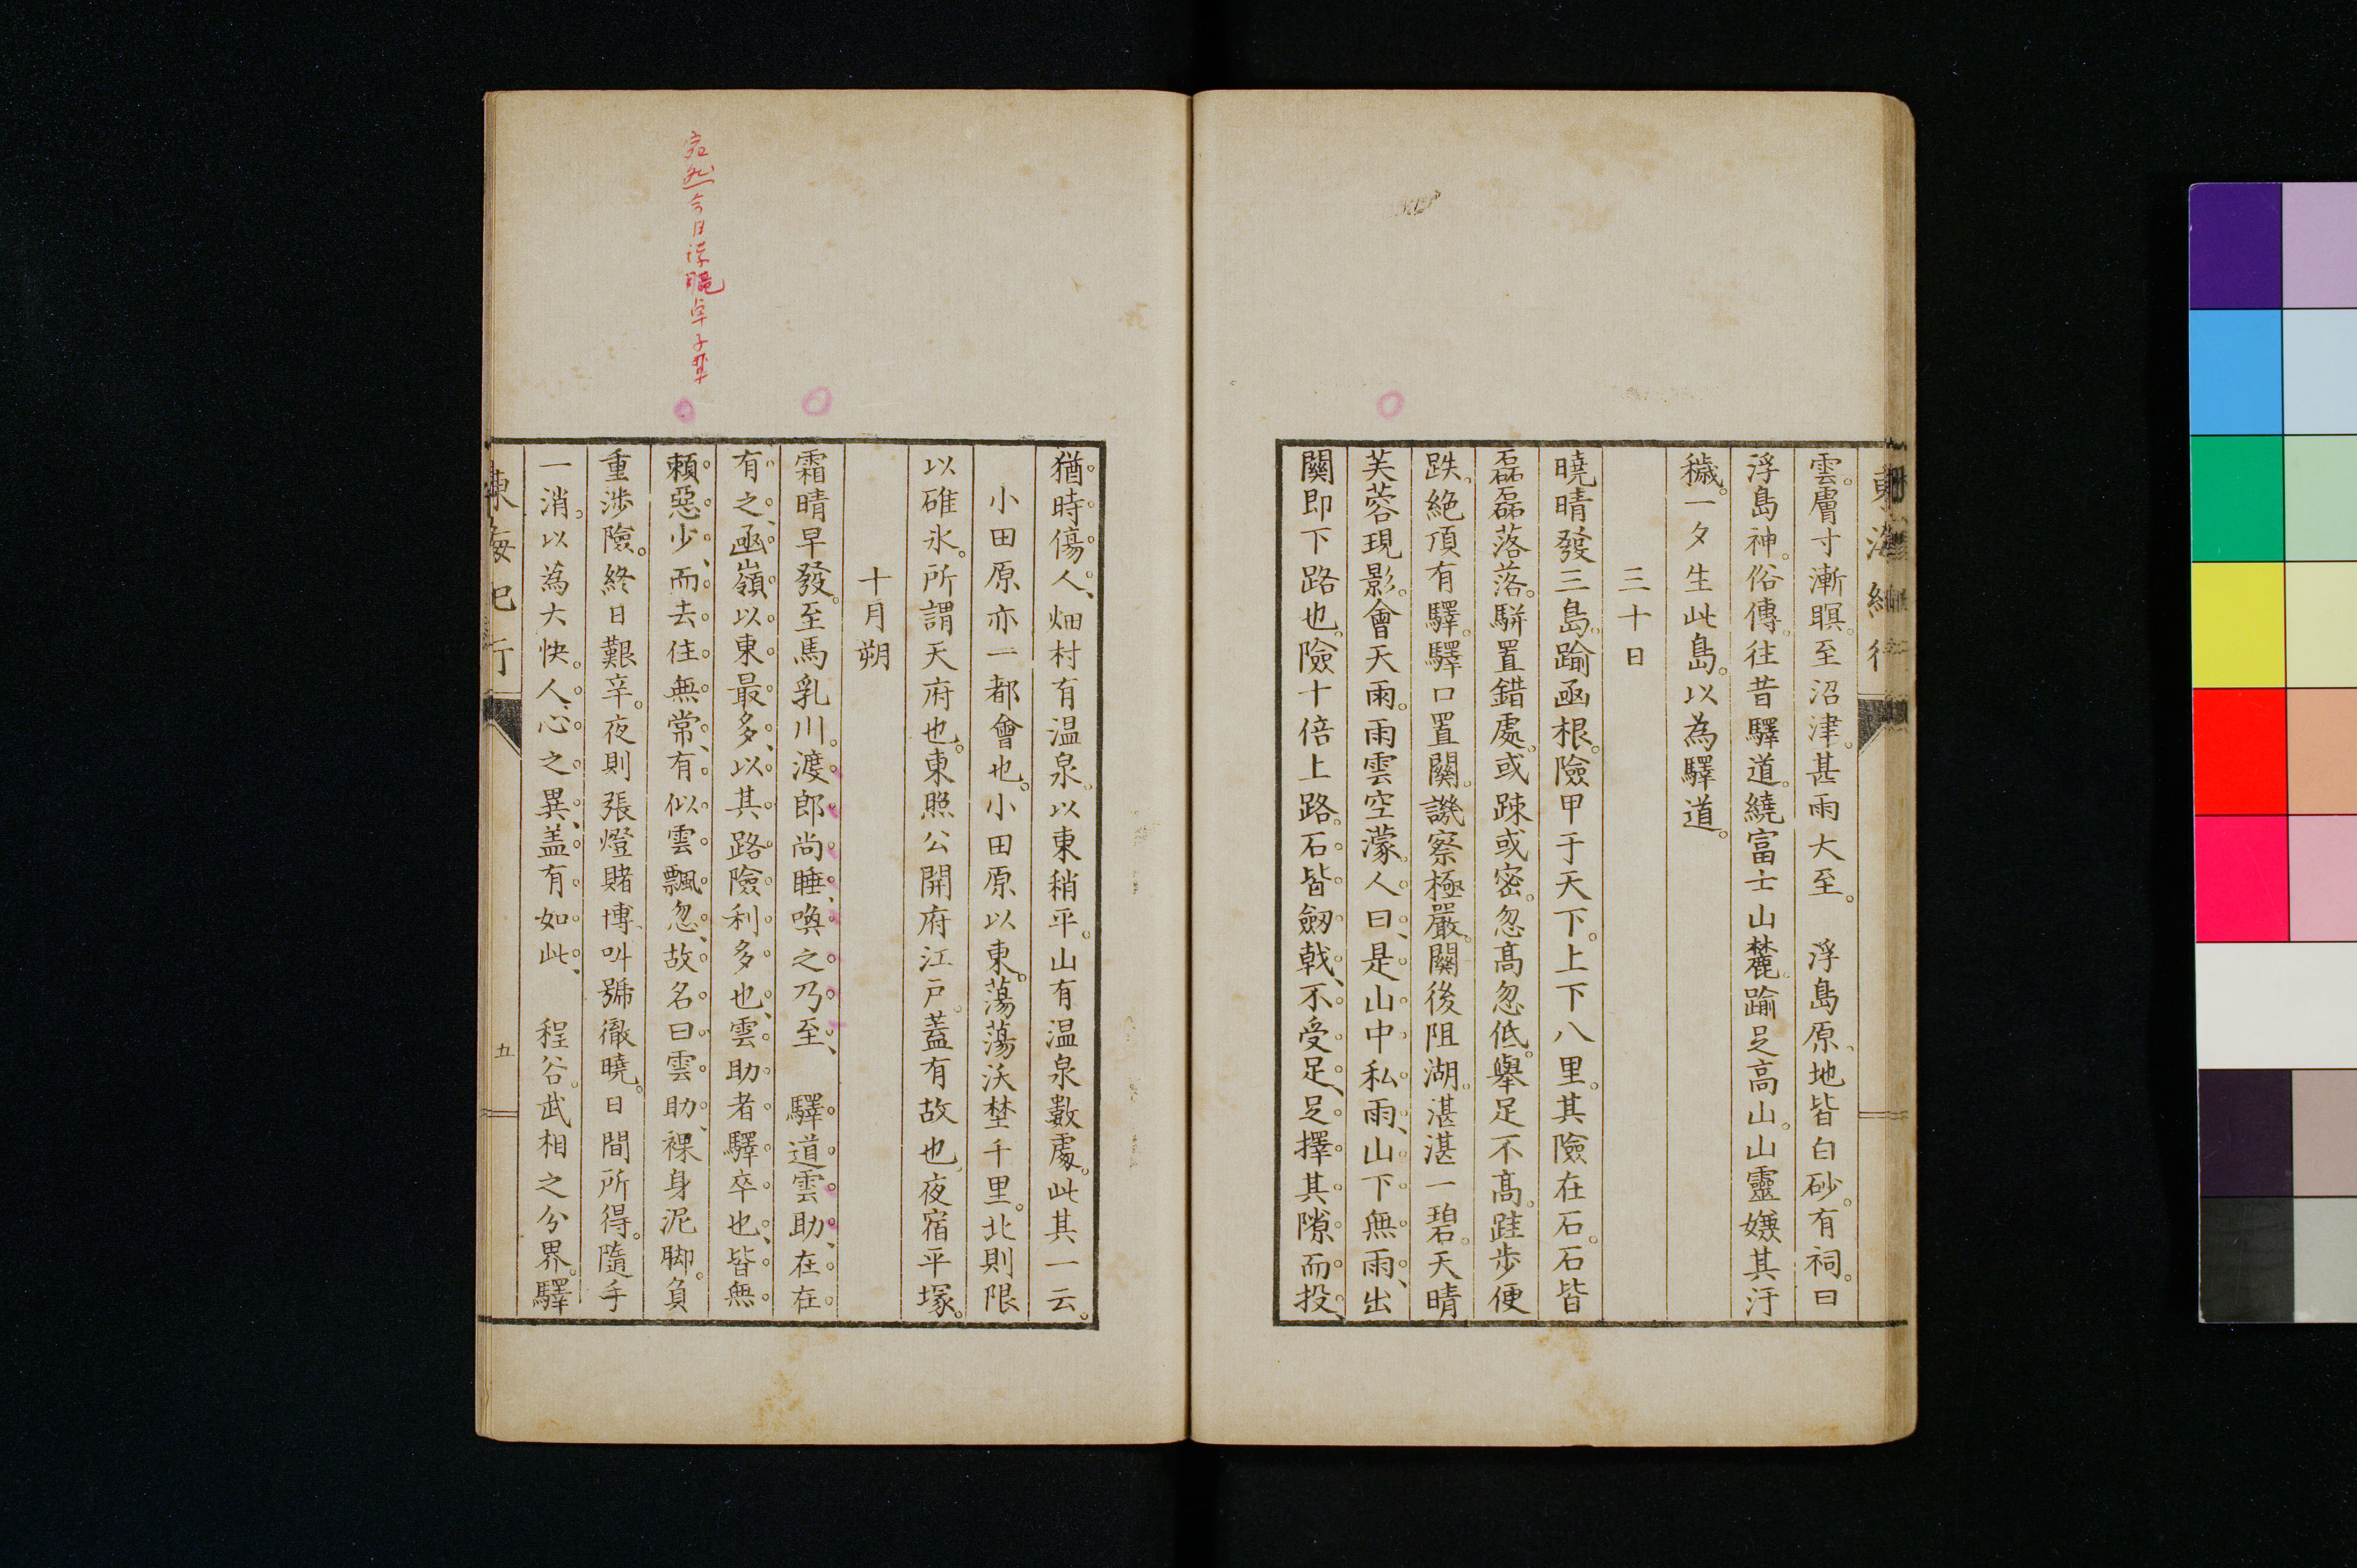 雲膚寸漸暝。至沼津。甚雨大至。浮島原、地皆白砂。有祠。曰
浮島神。俗傳。往昔驛道。繞富士山麓。踰足高山。山靈嫌其汙
穢。一夕生此島。以為驛道。
三十日
曉晴發三島。踰凾根。險甲于天下。上下八里。其險在石。石皆
磊磊落落。駢置錯處。或踈或密。忽高忽低。舉足不高。跬步便
跌。絕頂有驛。驛口置關。譏察極嚴。關後阻湖。湛湛一碧。天晴
芙蓉現影。會天雨。雨雲空濛。人曰、是山中私雨、山下無雨、出
關即下路也。險十倍上路。石皆劒戟、不受足、足擇其隙而投、
猶時傷人、畑村有温泉。以東稍平。山有温泉數處。此其一云。
小田原亦一都會也。小田原以東。蕩蕩沃埜千里。北則限
以碓氷。所謂天府也。東照公開府江戶。蓋有故也。夜宿平塚。
十月朔
霜晴早發。至馬乳川。渡郎尚睡、喚之乃至、驛道雲助、在在
有之、凾嶺以東最多、以其路險利多也、雲助者驛卒也、皆無
賴惡少、而去住無常、有似雲飄忽、故名曰雲助、裸身泥脚。負
重涉險。終日艱辛。夜則張燈賭博、叫號徹曉。日間所得。隨手
一消。以為大快。人心之異、盖有如此、程谷。武相之分界。驛
東海紀行
五
今日